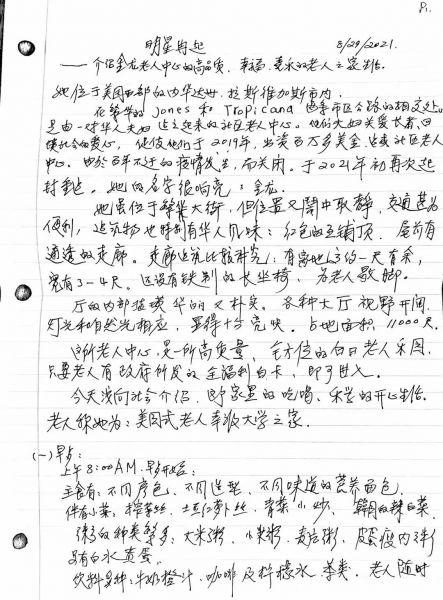 P1.
明星再起
8/29/2021.
——介绍金龙老人中心的高品质、幸福、喜乐的老人之家生活.
她位于美国西部的内华达州,拉斯维加斯市内.
在繁华的 Jones 和 Tropicana 这条市区公路的相交处.
是由一对华人夫妇建立起来的社区老人中心。他们夫妇关爱长者,回
馈社会的爱心,促使他们于2019年,出资百万多美金,这家社区老人
中心。由于百年不遇的疫情发生而关闭。于2021年初再次起
动重建。她的名字很响亮:金龙.
她虽位于繁华大街,但位置又闹中取静,交通甚为
便利,建筑物也特别有华人风味:红色的瓦铺顶,屋前有
通透的走廊。走廊建筑比较科究:有离地1.5的一尺有余,
宽有3-4尺。还设有铁制的长坐椅,为老人歇脚。
厅的内部装璜华丽又朴实。各种大厅视野开阔,
灯光和自然光相应,显得十分亮快。占地面积,11000尺.
这所老人中心,是一所高质量、全方位的白日老人乐园.
只要老人有政府所发的全福利白卡,即可进入。
今天浅向社会介绍,那家里的吃喝、乐学的开心生活.
老人称她为:美国式老人幸福大学之家.
(一)早点:
上午 8:00 AM. 早歺开始:
主食有:不同颜色、不同造型、不同味道的营养面包.
伴有小菜:榨菜丝、土豆红萝卜丝、青菜小炒、韩国的辣白菜.
粥的种类繁多:大米粥、小米粥、麦片粥、皮蛋瘦肉粥
另有白水煮蛋.
饮料多种:牛奶橙汁、咖啡及柠檬水、茶类,老人随时